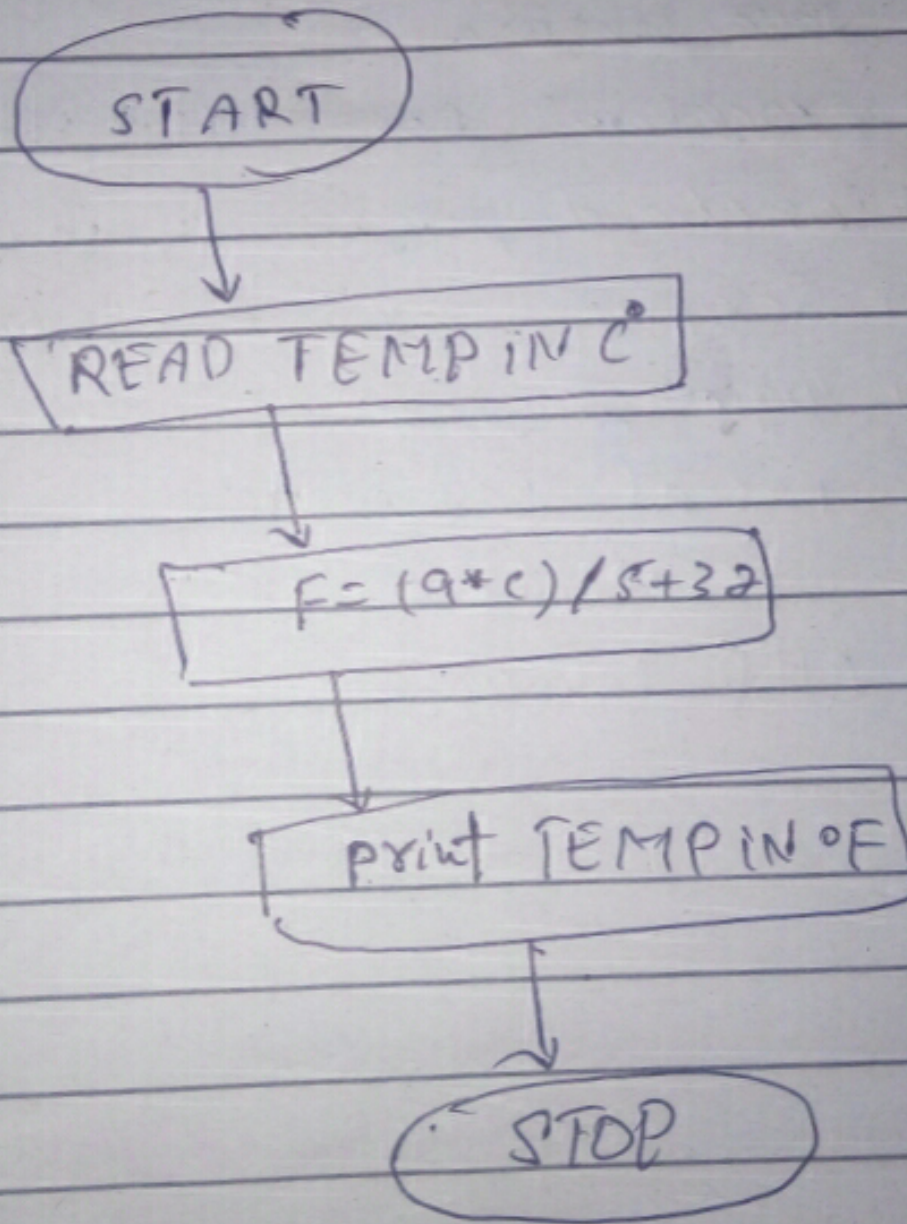 START
READ TEMP IN C°
F=(9*C)/5+32
print TEMP IN °F
STOP